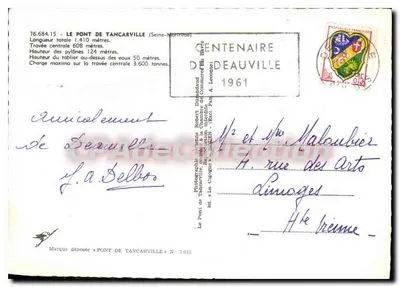 76.684.15 - LE PONT DE TANCARVILLE (Seine-Maritime)
Longueur totale 1.410 mètres.
Travée centrale 608 mètres.
Hauteur des pylônes 124 mètres.
Hauteur du tablier au-dessus des eaux 50 mètres.
Charge maxima sur la travée centrale 3.600 tonnes.
CENTENAIRE
DE DEAUVILLE
1961
Amicalement
de Deauville
J. A. Delbos
Mr et Mme Maloubier
rue des Arts
Limoges
Hte Vienne
Marque déposée « PONT DE TANCARVILLE » N°